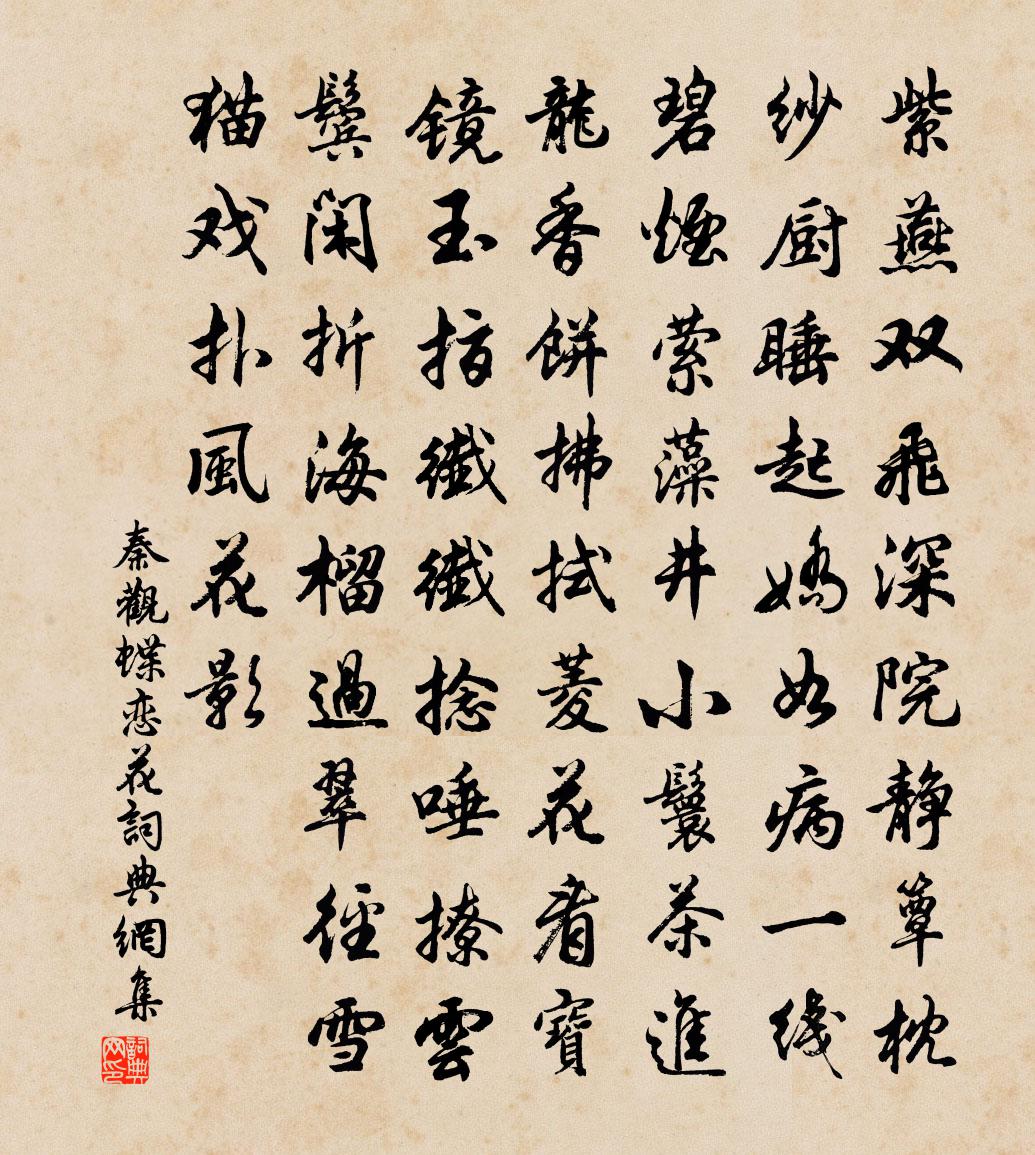 紫燕双飛深院静簟枕
纱厨睡起嬌如病一线
碧煙萦藻井小鬟茶進
龍香餅拂拭菱花看寶
鏡玉指纖纖捻唾撩雲
鬓闲折海榴過翠径雪
猫戏扑風花影
秦觀蝶恋花詞典網集
詞典网印